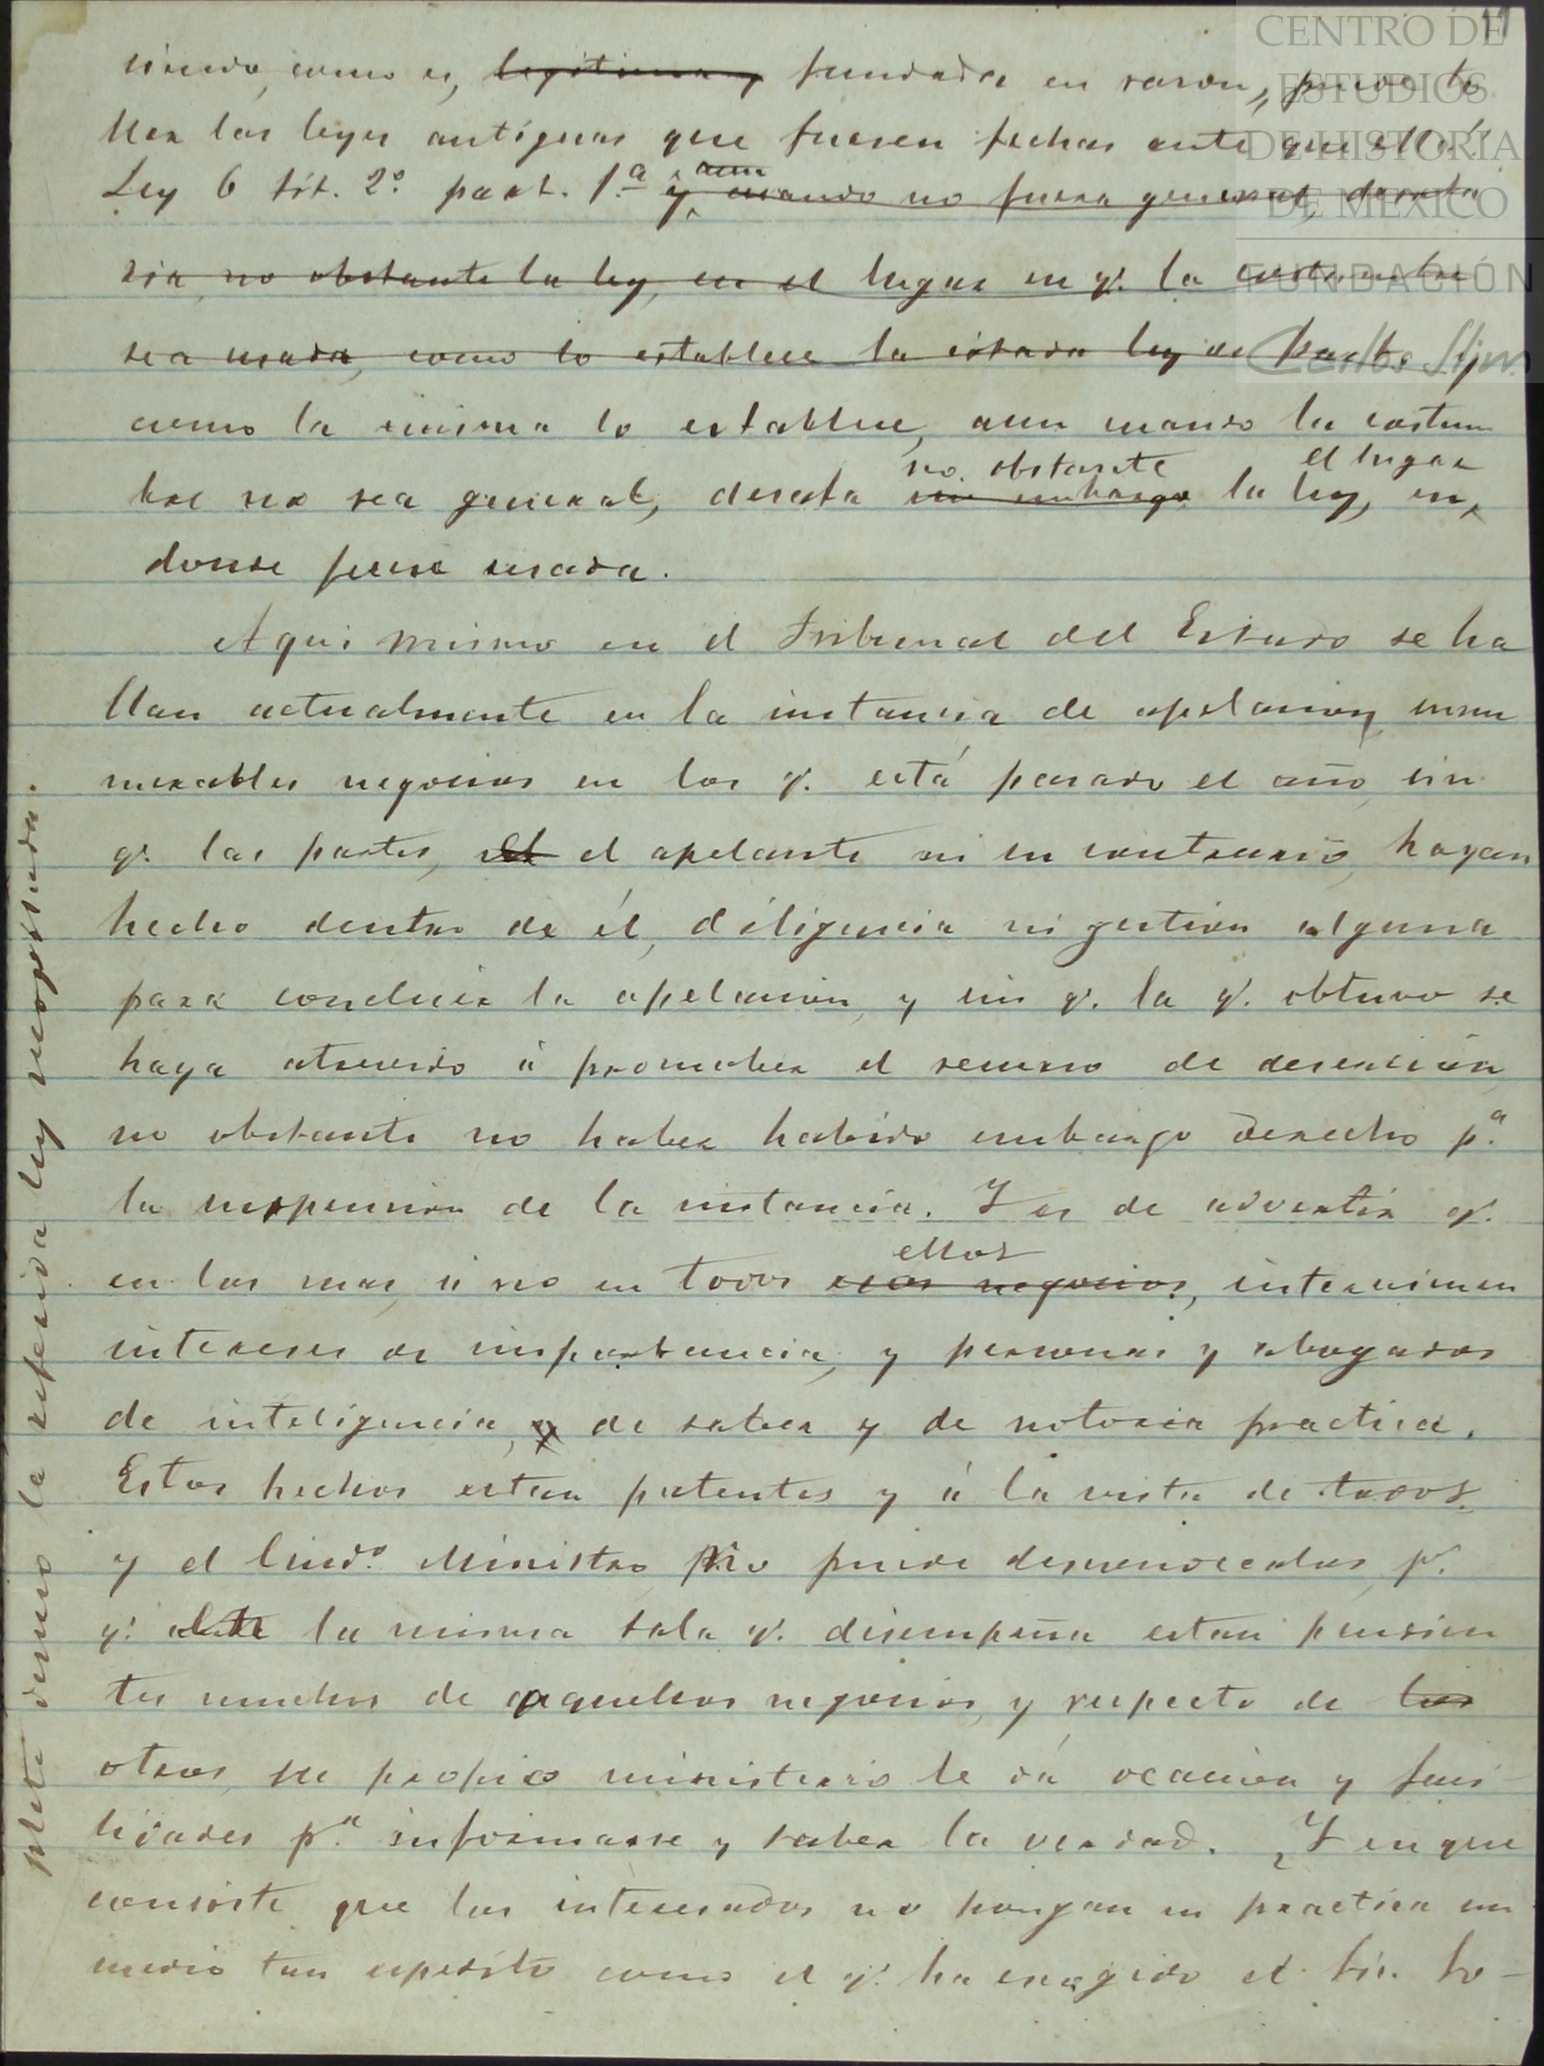 11
siendo, como es, legitima y fundada en rason, "puede to
ller las leyes antiguas que fueren fechas ante que ella."
Ley 6 tít. 2º part. 1ª y, aun cuando no fuera general, desata
ria, no obstante la ley, en el lugar en q. la costumbre
sea usada, como lo establece la citada ley de Part. y
como la misma lo establece, aun cuando la costum
bre no sea general, desata sin embargo no obstante la ley, en el lugar
donde fuere usada.
Aqui mismo en el Tribunal del Estado se ha
llan actualmente en la instancia de apelacion, innu
merables negocios en los q. está pasado el año, sin
q. las partes, el apelante ni su contrario, hayan
hecho dentro de él, diligencia ni gestion alguna
para concluir la apelacion, y sin q. la q. obtuvo se
haya atrevido á promober el recurso de desercion,
no obstante no haber habido embargo derecho pª
la suspension de la instancia. Y es de advertir q.
en los mas, si no en todos esos negocios ellos, intervienen
intereses de importancia, y personas y abogados
de inteligencia, y de saber y de notoria practica.
Estos hechos estan patentes y á la vista de todos
y el Ciudº Ministro no puede desconocerlos, p.
q. la misma sala q. desempeña estan pendien
tes muchos de aquellos negocios, y respecto de los
otros, su propio ministerio le dá ocacion y faci-
lidades pª informarse y saber la verdad. ¿Y en que
consiste que los interesados no pongan en practica un
medio tan espedito como el q. ha escogido el Sir. So-
plete demo la referida ley